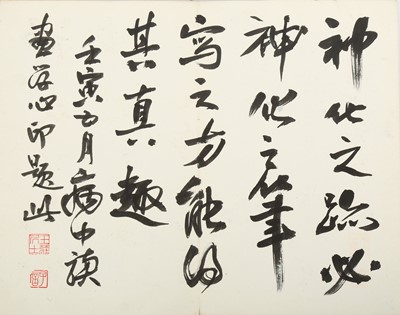 神化之跡必
神化之筆
寫之方能得
其真趣
壬寅五月病中讀
畫若心印題此